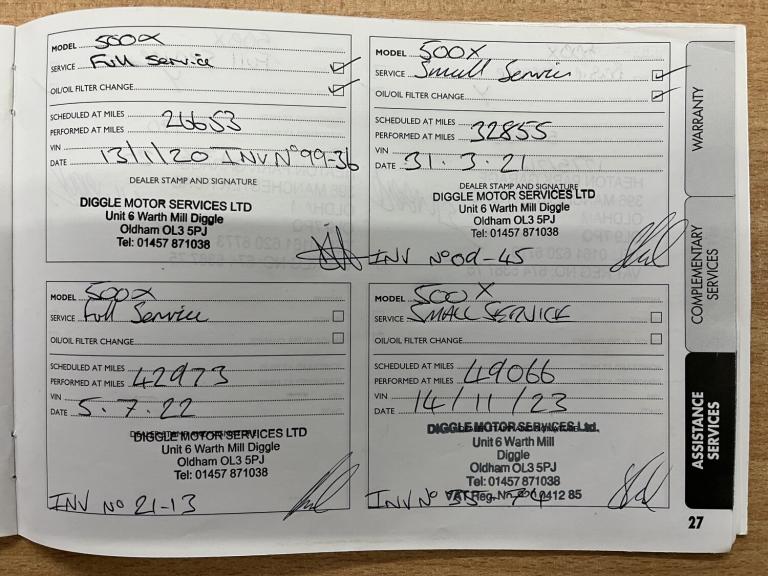 MODEL 500X
SERVICE Full Service
OIL/OIL FILTER CHANGE
SCHEDULED AT MILES
PERFORMED AT MILES 26653
VIN
DATE 13/1/20 INV Nº 99-36
DEALER STAMP AND SIGNATURE
DIGGLE MOTOR SERVICES LTD
Unit 6 Warth Mill Diggle
Oldham OL3 5PJ
Tel: 01457 871038
MODEL 500X
SERVICE Small Service
OIL/OIL FILTER CHANGE
SCHEDULED AT MILES
PERFORMED AT MILES 32855
VIN
DATE 31.3.21
DEALER STAMP AND SIGNATURE
DIGGLE MOTOR SERVICES LTD
Unit 6 Warth Mill Diggle
Oldham OL3 5PJ
Tel: 01457 871038
INV Nº 0d-45
MODEL 500X
SERVICE Full Service
OIL/OIL FILTER CHANGE
SCHEDULED AT MILES
PERFORMED AT MILES 42973
VIN
DATE 5.7.22
DIGGLE MOTOR SERVICES LTD
Unit 6 Warth Mill Diggle
Oldham OL3 5PJ
Tel: 01457 871038
INV Nº 21-13
MODEL 500X
SERVICE SMALL SERVICE
OIL/OIL FILTER CHANGE
SCHEDULED AT MILES
PERFORMED AT MILES 49066
VIN
DATE 14/11/23
DIGGLE MOTOR SERVICES Ltd.
Unit 6 Warth Mill
Diggle
Oldham OL3 5PJ
Tel: 01457 871038
VAT Reg. 0412 85
INV Nº
WARRANTY
COMPLEMENTARY
SERVICES
ASSISTANCE
SERVICES
27